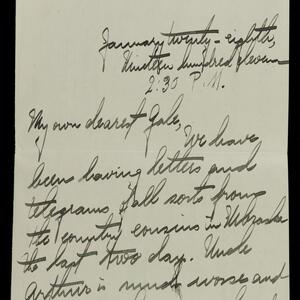 January twenty-eighth,
Nineteen hundred eleven
2:30 P.M.
My own dearest Gale,
We have
been having letters and
telegrams, of all sorts from
the country cousins in Nebraska
the last two day. Uncle
Arthur is much worse and